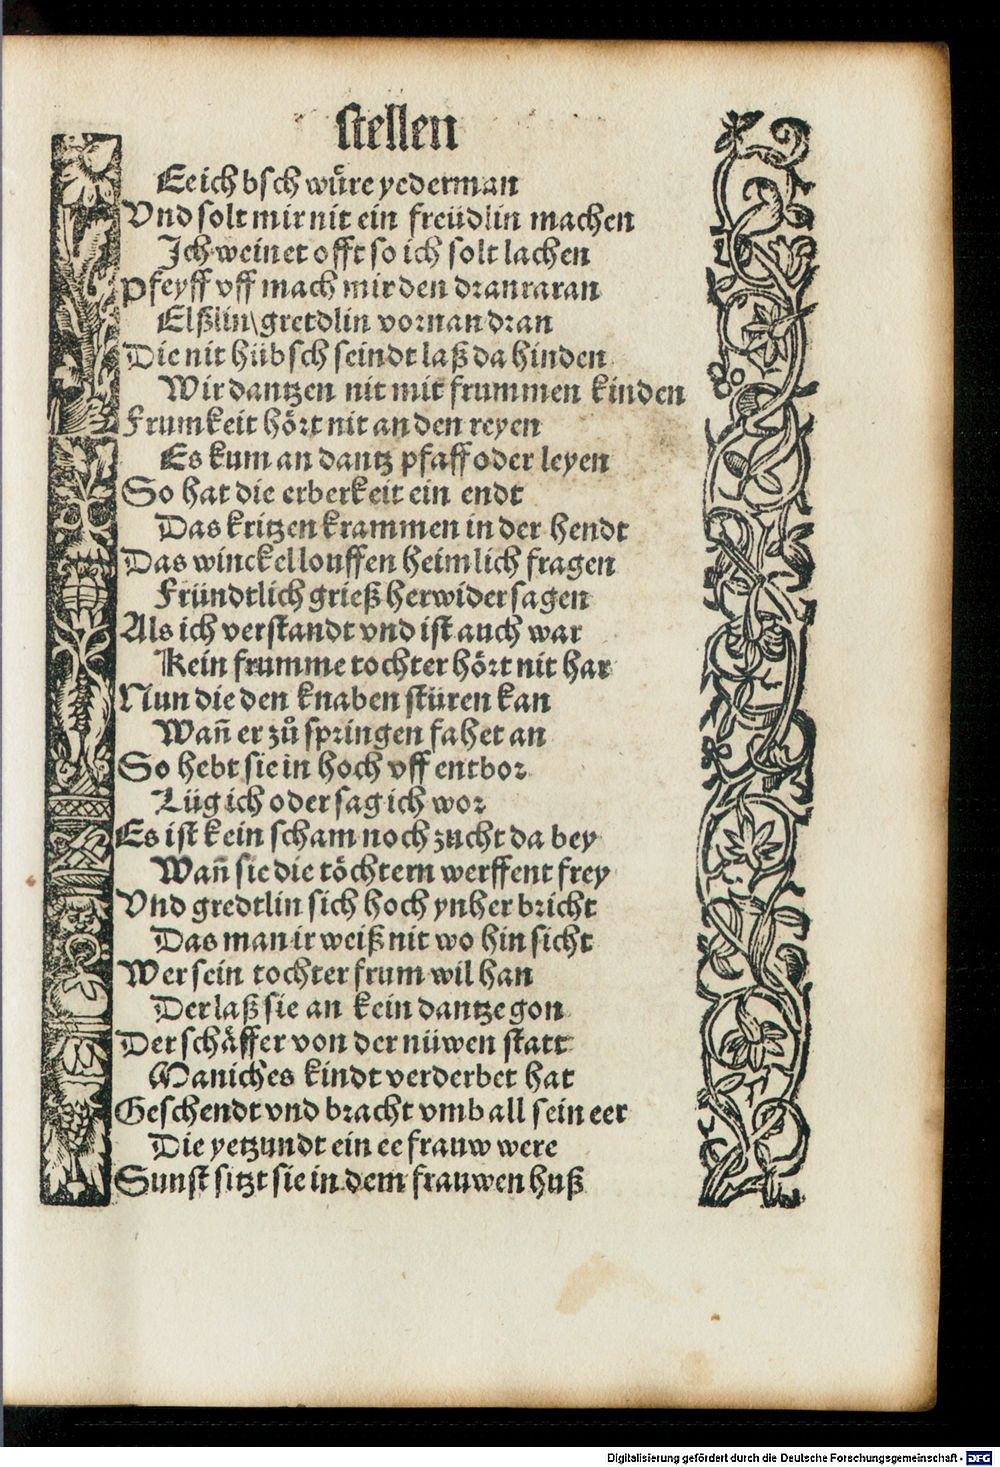 stellen
Ee ich bsch würe yederman
Vnd solt mir nit ein freüdlin machen
Ich weinet offt so ich solt lachen
Pfeyff vff mach mir den dranraran
Elßlin\ gretdlin vornan dran
Die nit hübsch seindt laß da hinden
Wir dantzen nit mit frummen kinden
Frumkeit hört nit an den reyen
Es kum an dantz pfaff oder leyen
So hat die erberkeit ein endt
Das kritzen krammen in der hendt
Das winckellouffen heimlich fragen
Fründtlich grieß herwider sagen
Als ich verstandt vnd ist auch war
Kein frumme tochter hört nit har
Nun die den knaben stüren kan
Wañ er zů springen fahet an
So hebt sie in hoch vff entbor
Lüg ich oder sag ich wor
Es ist kein scham noch zucht da bey
Wañ sie die töchtern werffent frey
Vnd gredtlin sich hoch ynher bricht
Das man ir weiß nit wo hin sicht
Wer sein tochter frum wil han
Der laß sie an kein dantze gon
Der schäffer von der nüwen statt
Maniches kindt verderbet hat
Geschendt vnd bracht vmb all sein eer
Die yetzundt ein ee frauw were
Sunst sitzt sie in dem frauwen huß
Digitalisierung gefördert durch die Deutsche Forschungsgemeinschaft - DFG